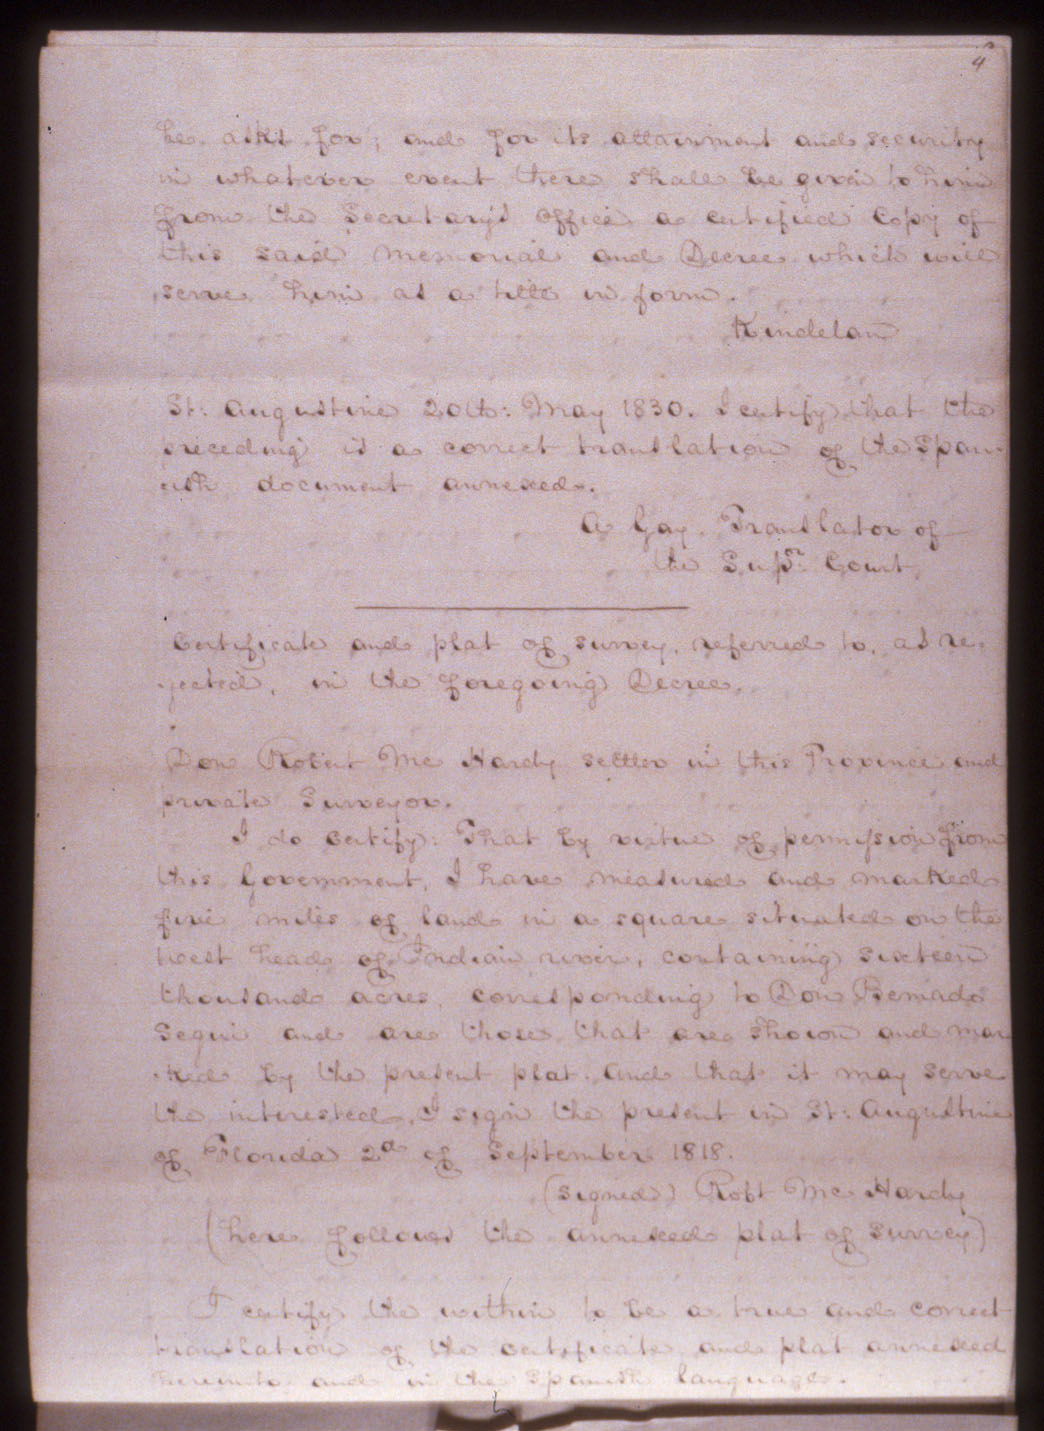 4
he asks for; and for its attainment and security
in whatever event there shall be given to him
from the Secretary's Office a certified Copy of
this said Memorial and Decree which will
serve him as a title in form.
Kindelan
St: Augustine 20th: May 1830. I certify that the
preceding is a correct translation of the Span-
ish document annexed.
A Gay. Translator of
the Supr: Court
Certificate and plat of survey, referred to, as re-
jected, in the foregoing Decree.
Don Robert Mc Hardy settler in this Province and
private Surveyor.
I do certify: That by virtue of permission from
this Government, I have measured and marked
five miles of land in a square situated on the
west head of Indian river, containing sixteen
thousand acres, corresponding to Don Bernardo
Segui and are those that are shown and mar
ked by the present plat. And that it may serve
the interested, I sign the present in St: Augustine
of Florida 2d of September 1818.
(signed) Robt Mc Hardy
(here follows the annexed plat of survey)
I certify the within to be a true and correct
translation of the certificate and plat annexed
hereunto and in the Spanish language.